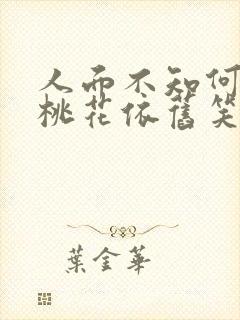 人面不知何
桃花依舊笑
葉金華